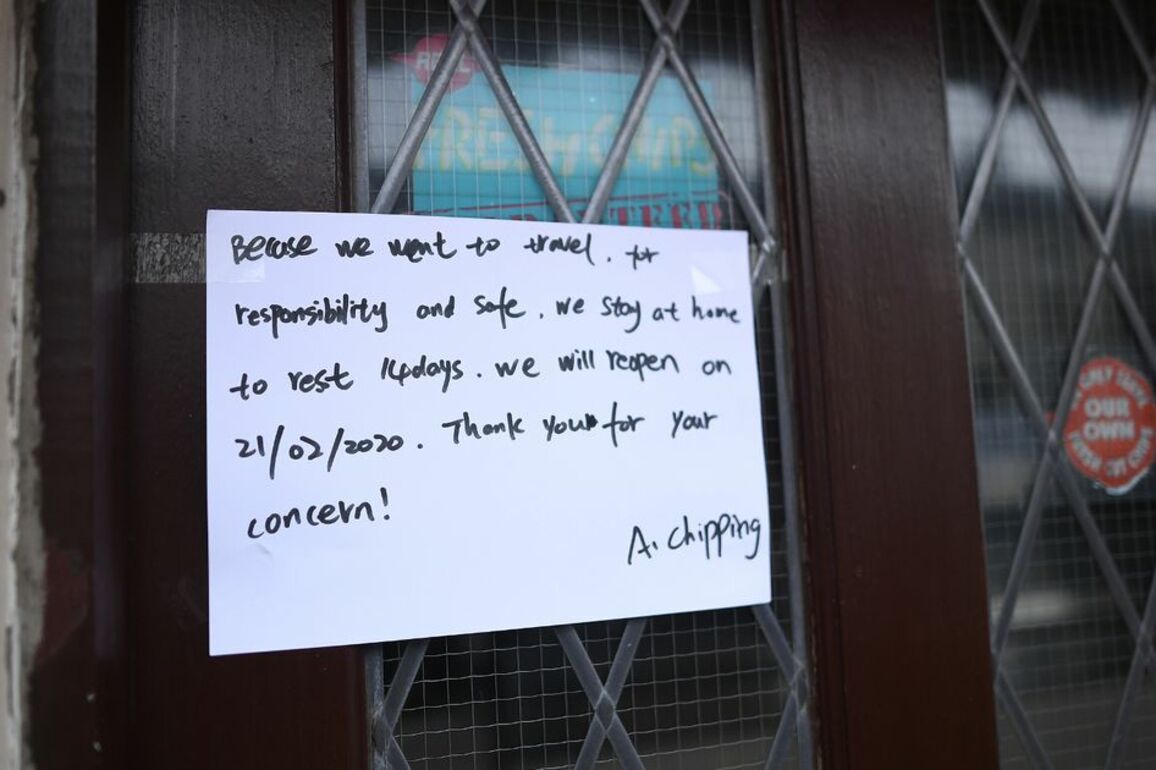 REAL
FRESH CHIPS
Becase we went to travel. for
responsibility and safe. we stay at home
to rest 14days. we will reopen on
21/02/2020. Thank your for your
concern!
A. chipping
OUR
OWN